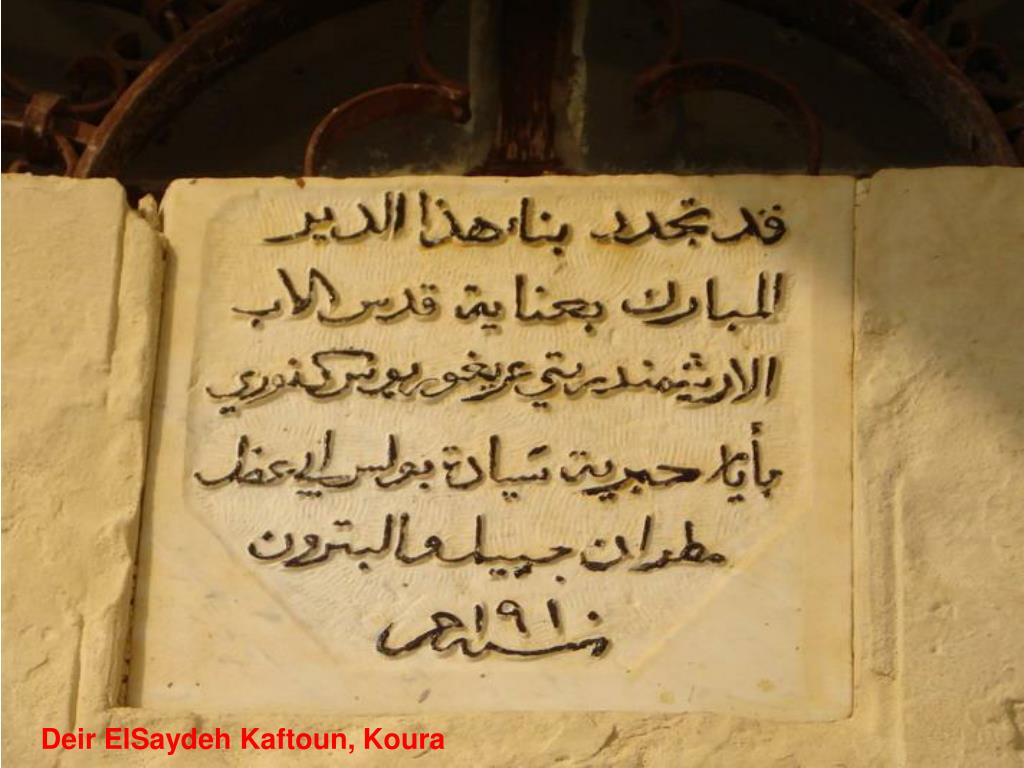 قد تجدد بناء هذا الدير
المبارك بعناية قدس الاب
الارشمندريتي غريغوريوس كفوري
بأيام حبرية سيادة بولس ابي عضل
مطران جبيل والبترون
سنة
Deir ElSaydeh Kaftoun, Koura